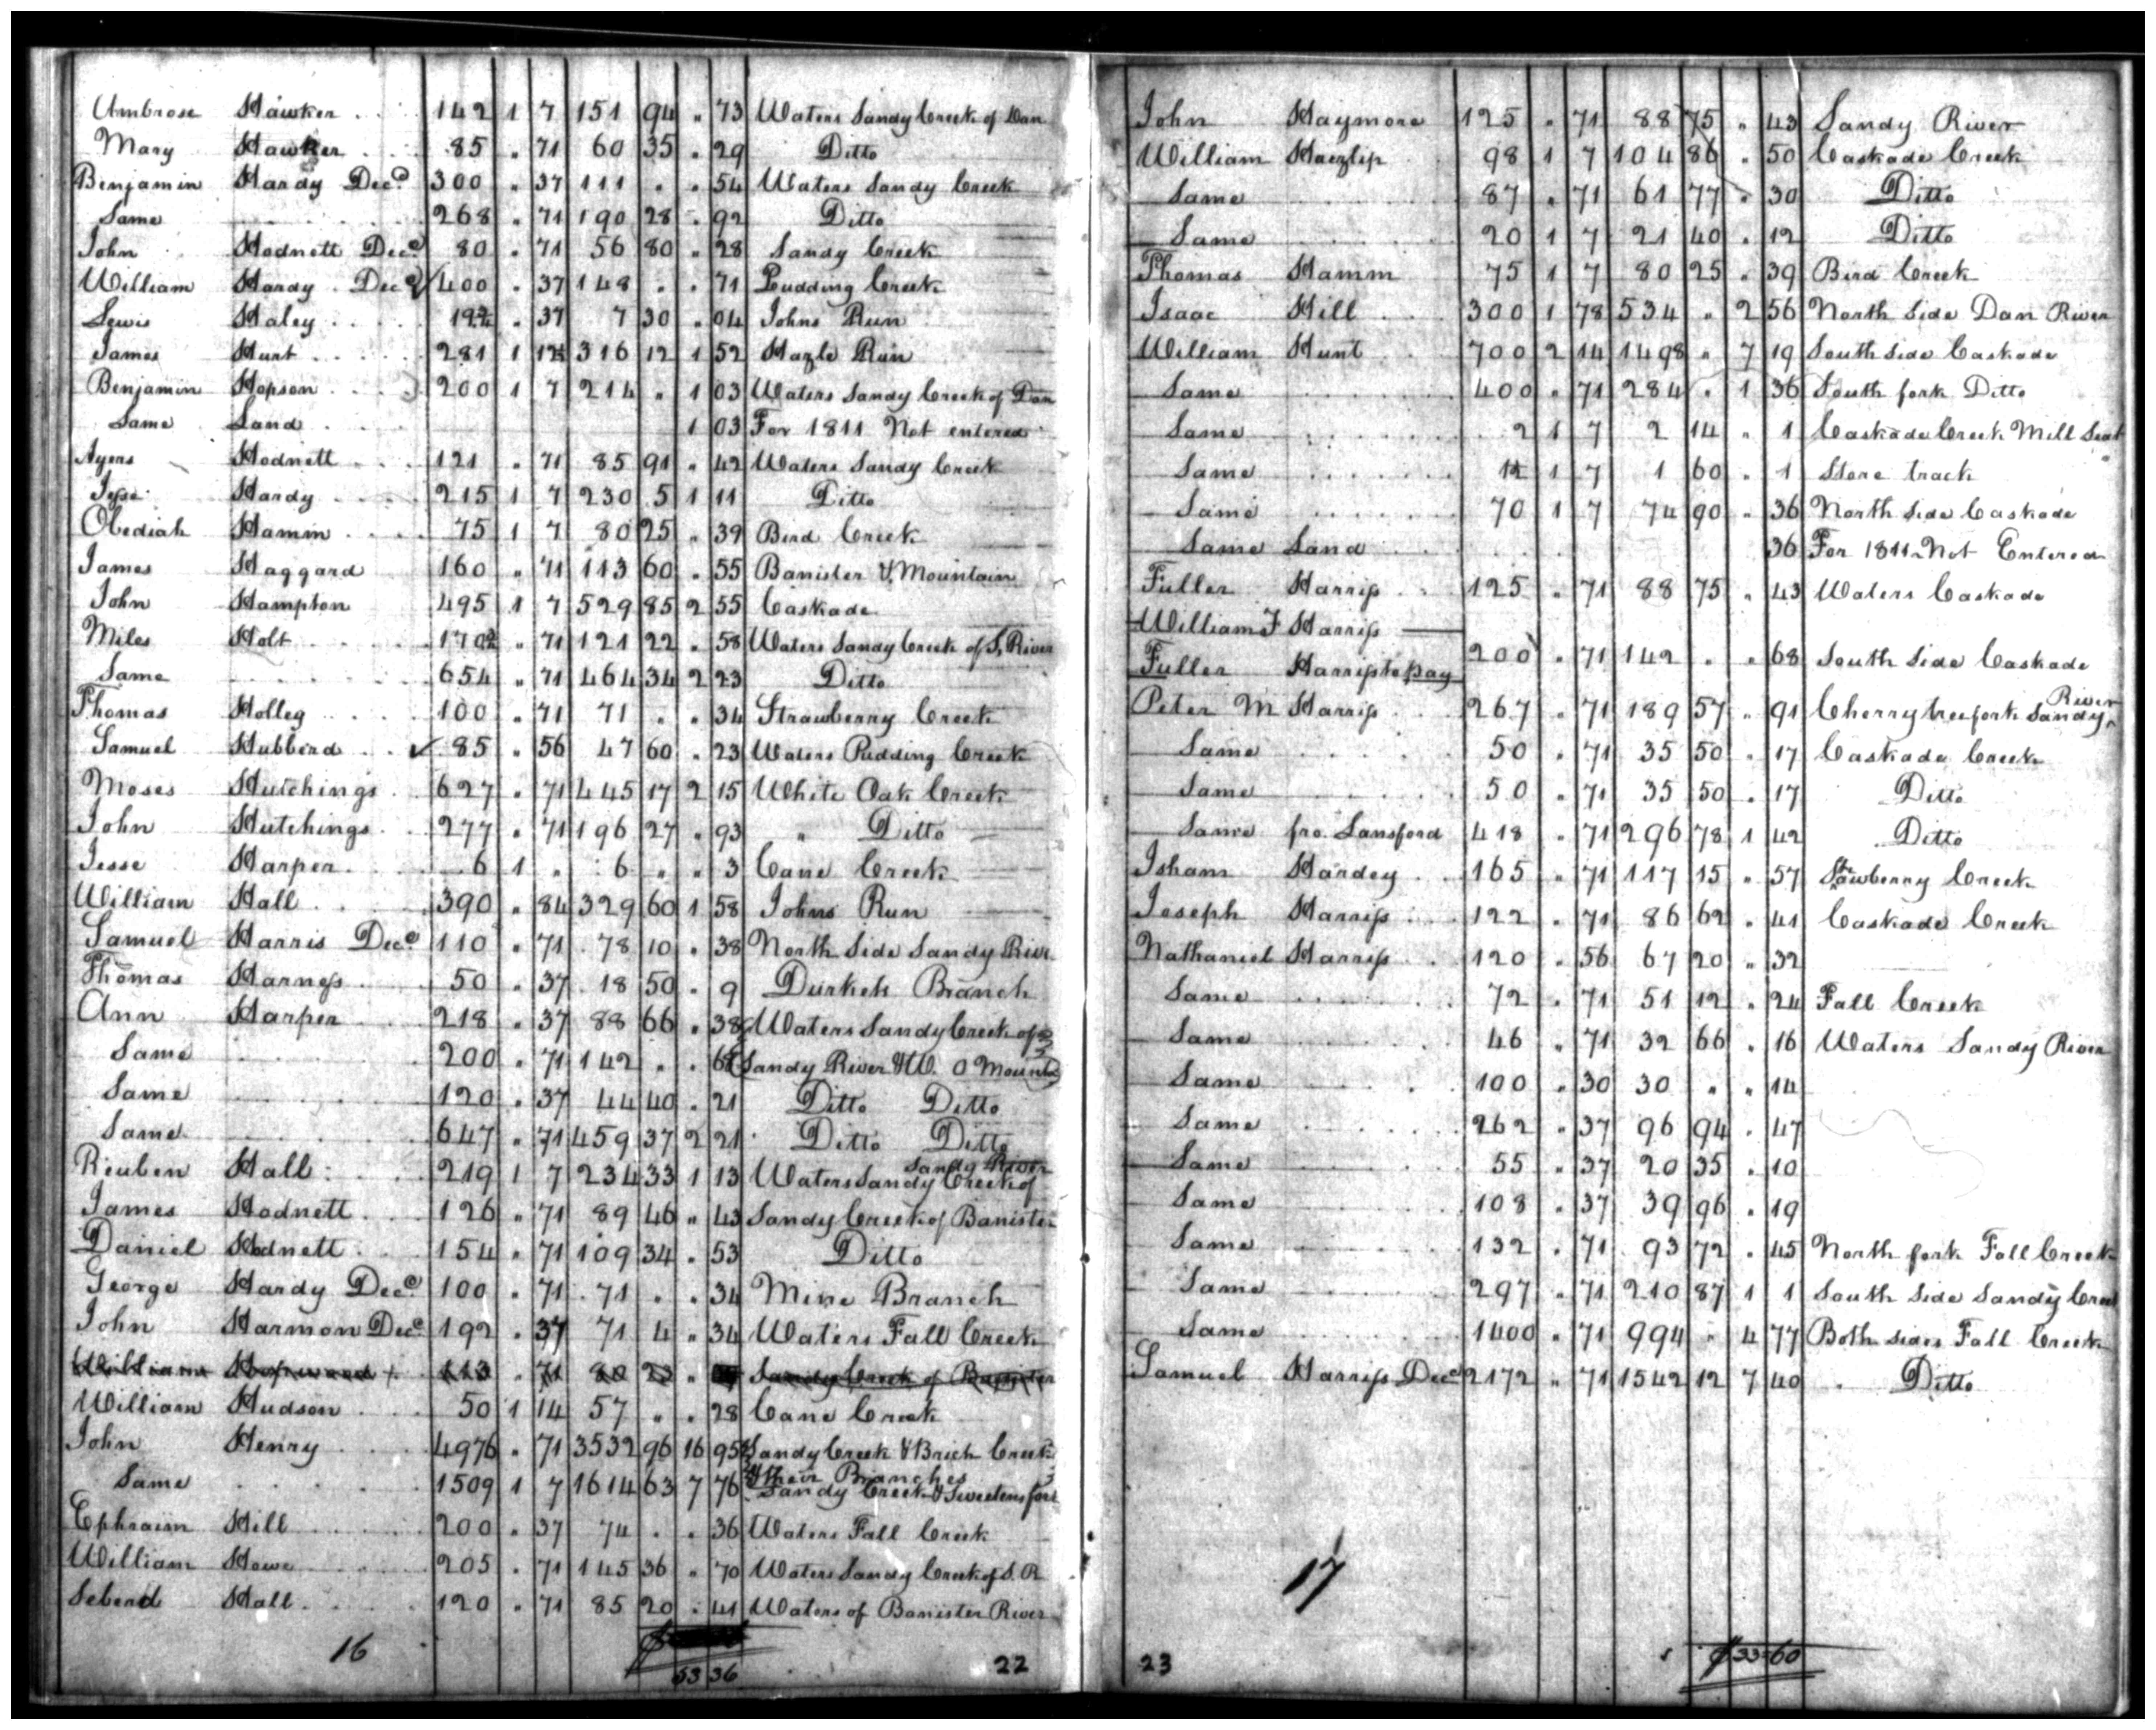 Ambrose Hawker . . 142 1 7 151 94 " 73 Waters Sandy Creek of Dan
Mary Hawker . . 85 . 71 60 35 . 29 Ditto
Benjamin Hardy Decd 300 " 37 111 . . 54 Waters Sandy Creek
Same 268 " 71 190 28 . 92 Ditto
John Hodnett Decd 80 . 71 56 80 " 28 Sandy Creek
William Hardy Decd 400 . 37 148 . . 71 Pudding Creek
Lewis Haley . . . 19¾ . 37 7 30 . 04 Johns Run
James Hunt . . . 281 1 12½ 316 12 1 52 Hazle Run
Benjamin Hopson . . 200 1 7 214 " 1 03 Waters Sandy Creek of Dan
Same Land . . 1 03 For 1811 Not entered
Ayers Hodnett . . 121 " 71 85 91 " 42 Waters Sandy Creek
Jesse Hardy . . . 215 1 7 230 5 1 11 Ditto
Obediah Hamm . . . 75 1 7 80 25 " 39 Bird Creek
James Haggard 160 " 71 113 60 . 55 Banister & Mountain
John Hampton 495 1 7 529 85 2 55 Caskade
Miles Holt . . . 170¾ " 71 121 22 . 58 Waters Sandy Creek of S. River
Same 654 " 71 464 34 2 23 Ditto
Thomas Holley . . . 100 . 71 71 . . 34 Strawberry Creek
Samuel Hubberd . . 85 . 56 47 60 . 23 Waters Pudding Creek
Moses Hutchings . 627 . 71 445 17 2 15 White Oak Creek
John Hutchings . 277 . 71 196 27 . 93 " Ditto
Jesse Harper . . 6 1 " 6 " " 3 Cane Creek
William Hall . . . 390 . 84 329 60 1 58 Johns Run
Samuel Harris Decd 110 . 71 78 10 . 38 North Side Sandy River
Thomas Harness . . 50 . 37 18 50 . 9 Branch
Ann Harper . . 218 . 37 88 66 . 38 Waters Sandy Creek of
Same 200 . 71 142 . . 68 Sandy River & W. O Mount
Same 120 . 37 44 40 . 21 Ditto Ditto
Same 647 . 71 459 37 2 21 Ditto Ditto
Reuben Hall . . 219 1 7 234 33 1 13 Waters Sandy Creek of Sandy River
James Hodnett . . 126 " 71 89 46 " 43 Sandy Creek of Banister
Daniel Hodnett . . 154 . 71 109 34 . 53 Ditto
George Hardy Decd 100 . 71 71 . . 34 Mine Branch
John Harmon Decd 192 . 37 71 4 " 34 Waters Fall Creek
William Hopwood 113 . 71 80 23 Sandy Creek of Banister
William Hudson . . 50 1 14 57 " . 28 Cane Creek
John Henry . . . 4976 . 71 3532 96 16 95 Sandy Creek & Brich Creek
& their Branches
Same 1509 1 7 1614 63 7 76 Sandy Creek & Sweetens fork
Ephraim Hill . . . 200 . 37 74 . . 36 Waters Fall Creek
William Howe . . . 205 . 71 145 36 " 70 Waters Sandy Creek of S. R
Hall . . . 120 " 71 85 20 . 41 Waters of Banister River
53 36
16
22
John Haymore 125 " 71 88 75 " 43 Sandy River
William Haezlip 98 1 7 104 86 . 50 Caskade Creek
Same 87 . 71 61 77 . 30 Ditto
Same 20 1 7 21 40 . 12 Ditto
Thomas Hamm 75 1 7 80 25 " 39 Bird Creek
Isaac Hill 300 1 78 534 " 2 56 North Side Dan River
William Hunt 700 2 14 1498 " 7 19 South Side Caskade
Same 400 . 71 284 . 1 36 South fork Ditto
Same 2 1 7 2 14 " 1 Caskade Creek Mill Seat
Same 1½ 1 7 1 60 . 1 Store track
Same 70 1 7 74 90 " 36 North Side Caskade
Same Land 36 For 1811 Not Entered
Fuller Harriss . . 125 " 71 88 75 " 43 Waters Caskade
William F Harriss
Fuller Harriss to pay 200 " 71 142 . " 68 South Side Caskade
Peter M Harriss 267 " 71 189 57 " 91 Cherrytree fork Sandy River
Same 50 " 71 35 50 " 17 Caskade Creek
Same 50 " 71 35 50 . 17 Ditto
Same fro. Lansford 418 " 71 296 78 1 42 Ditto
Isham Hardey . . 165 " 71 117 15 " 57 Strawberry Creek
Joseph Harriss . . 122 " 71 86 62 . 41 Caskade Creek
Nathaniel Harriss . . 120 . 56 67 20 " 32
Same 72 " 71 51 12 . 24 Fall Creek
Same 46 . 71 32 66 . 16 Waters Sandy River
Same 100 . 30 30 " " 14
Same 262 " 37 96 94 . 47
Same 55 " 37 20 35 . 10
Same 108 . 37 39 96 . 19
Same 132 . 71 93 72 . 45 North fork Fall Creek
Same 297 " 71 210 87 1 1 South Side Sandy Creek
Same 1400 " 71 994 " 4 77 Both sides Fall Creek
Samuel Harriss Decd 2172 " 71 1542 12 7 40 Ditto
17
23
$ 33 60